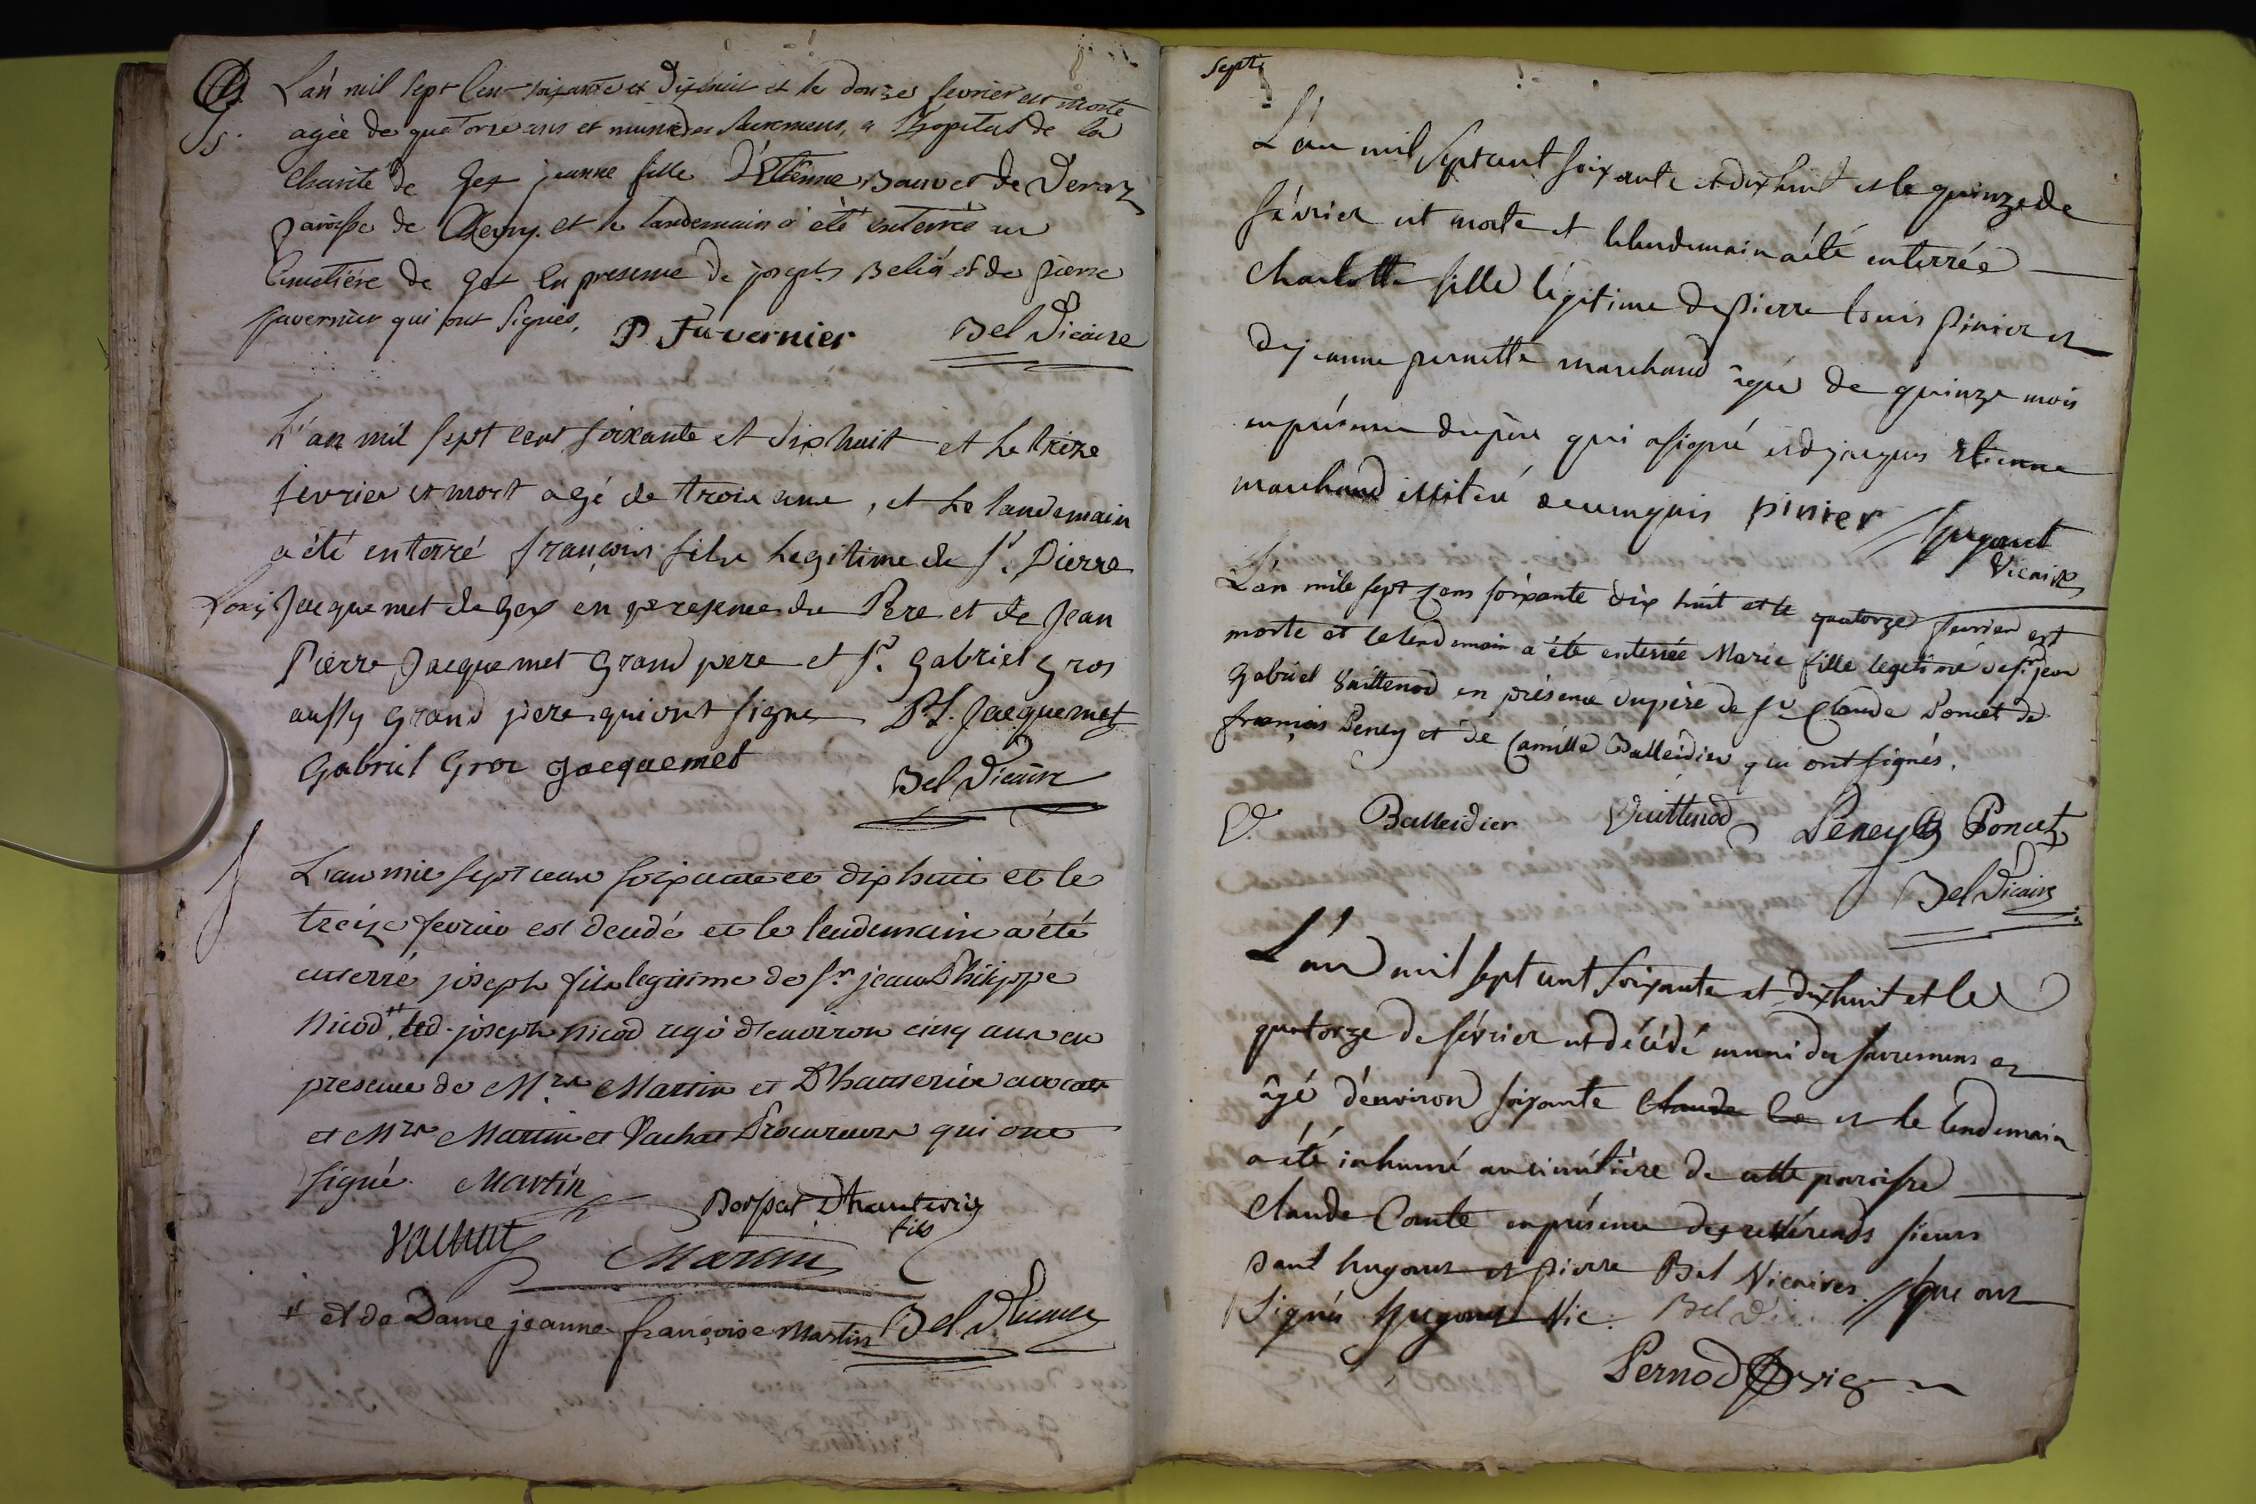 L'an mil sept cent soixante et dixhuit et le douze fevrier est morte
agée de quatorze ans et munie des sacremens, a l'hopital de la
Charité de Gex jeanne fille d'Etienne Bauver de Veraz
paroisse de Chevry. et le landemain a été enterrée au
Cimetière de Gex en presence de joseph Belia et de pierre
favernier qui ont signés.
P. Favernier Bel Vicaire
L'an mil sept cent soixante et dix huit et le treize
fevrier est mort agé de trois ans, et le landemain
a été enterré françois fils legitime de Sr. Pierre
Jacquemet de Gex en presence du Pere et de Jean
Pierre Jacquemet Grand pere et Sr. Gabriel Gros
aussy Grand pere qui ont signe P. J. Jacquemet
Gabriel Gros Jacquemet
Bel Vicaire
L'an mil sept cent soixante et dix huit et le
treize fevrier est decedé et le lendemain a été
enterré joseph fils legitime de Sr. jean Philippe
Nicod # joseph Nicod agé d'environ cinq ans en
presence de Mrs Martin et D'hauterive avocats
et Mrs Martin et Vachat Procureurs qui ont
signé. Martin
Dhauterive
fils
Vachat Martin
# et de Dame jeanne françoise Martin Bel Vicaire
sept
L'an mil sept cent soixante et dix huit et le quinze de
février est morte et le lendemain a été enterrée
Charlotte fille légitime de pierre Louis pinier et
de jeanne pernette marchand âgée de quinze mois
en présence du père qui a signé et de jacques Etienne
marchand illiteré ce requis pinier Hugonet
Vicaire
L'an mile sept cens soixante dix huit et le quatorze fevrier est
morte et le lendemain a été enterrée Marie fille legitime de Sr jean
Gabriel Vuittenod en présence du père de Sr Claude Poncet de
françois Peney et de Camille Balleidier qui ont signés.
Balleidier Vuittenod Peney Poncet
Bel Vicaire
L'an mil sept cent soixante et dixhuit et le
quatorze de février est décédé muni des sacremens et
âgé d'environ soixante Claude Co et le lendemain
a été inhumé au cimétière de cette paroisse
Claude Comte en présence des révérends sieurs
paul hugonet et pierre Bel Vicaires. qui ont
signés Hugonet Vic. Bel Vic.
Pernod